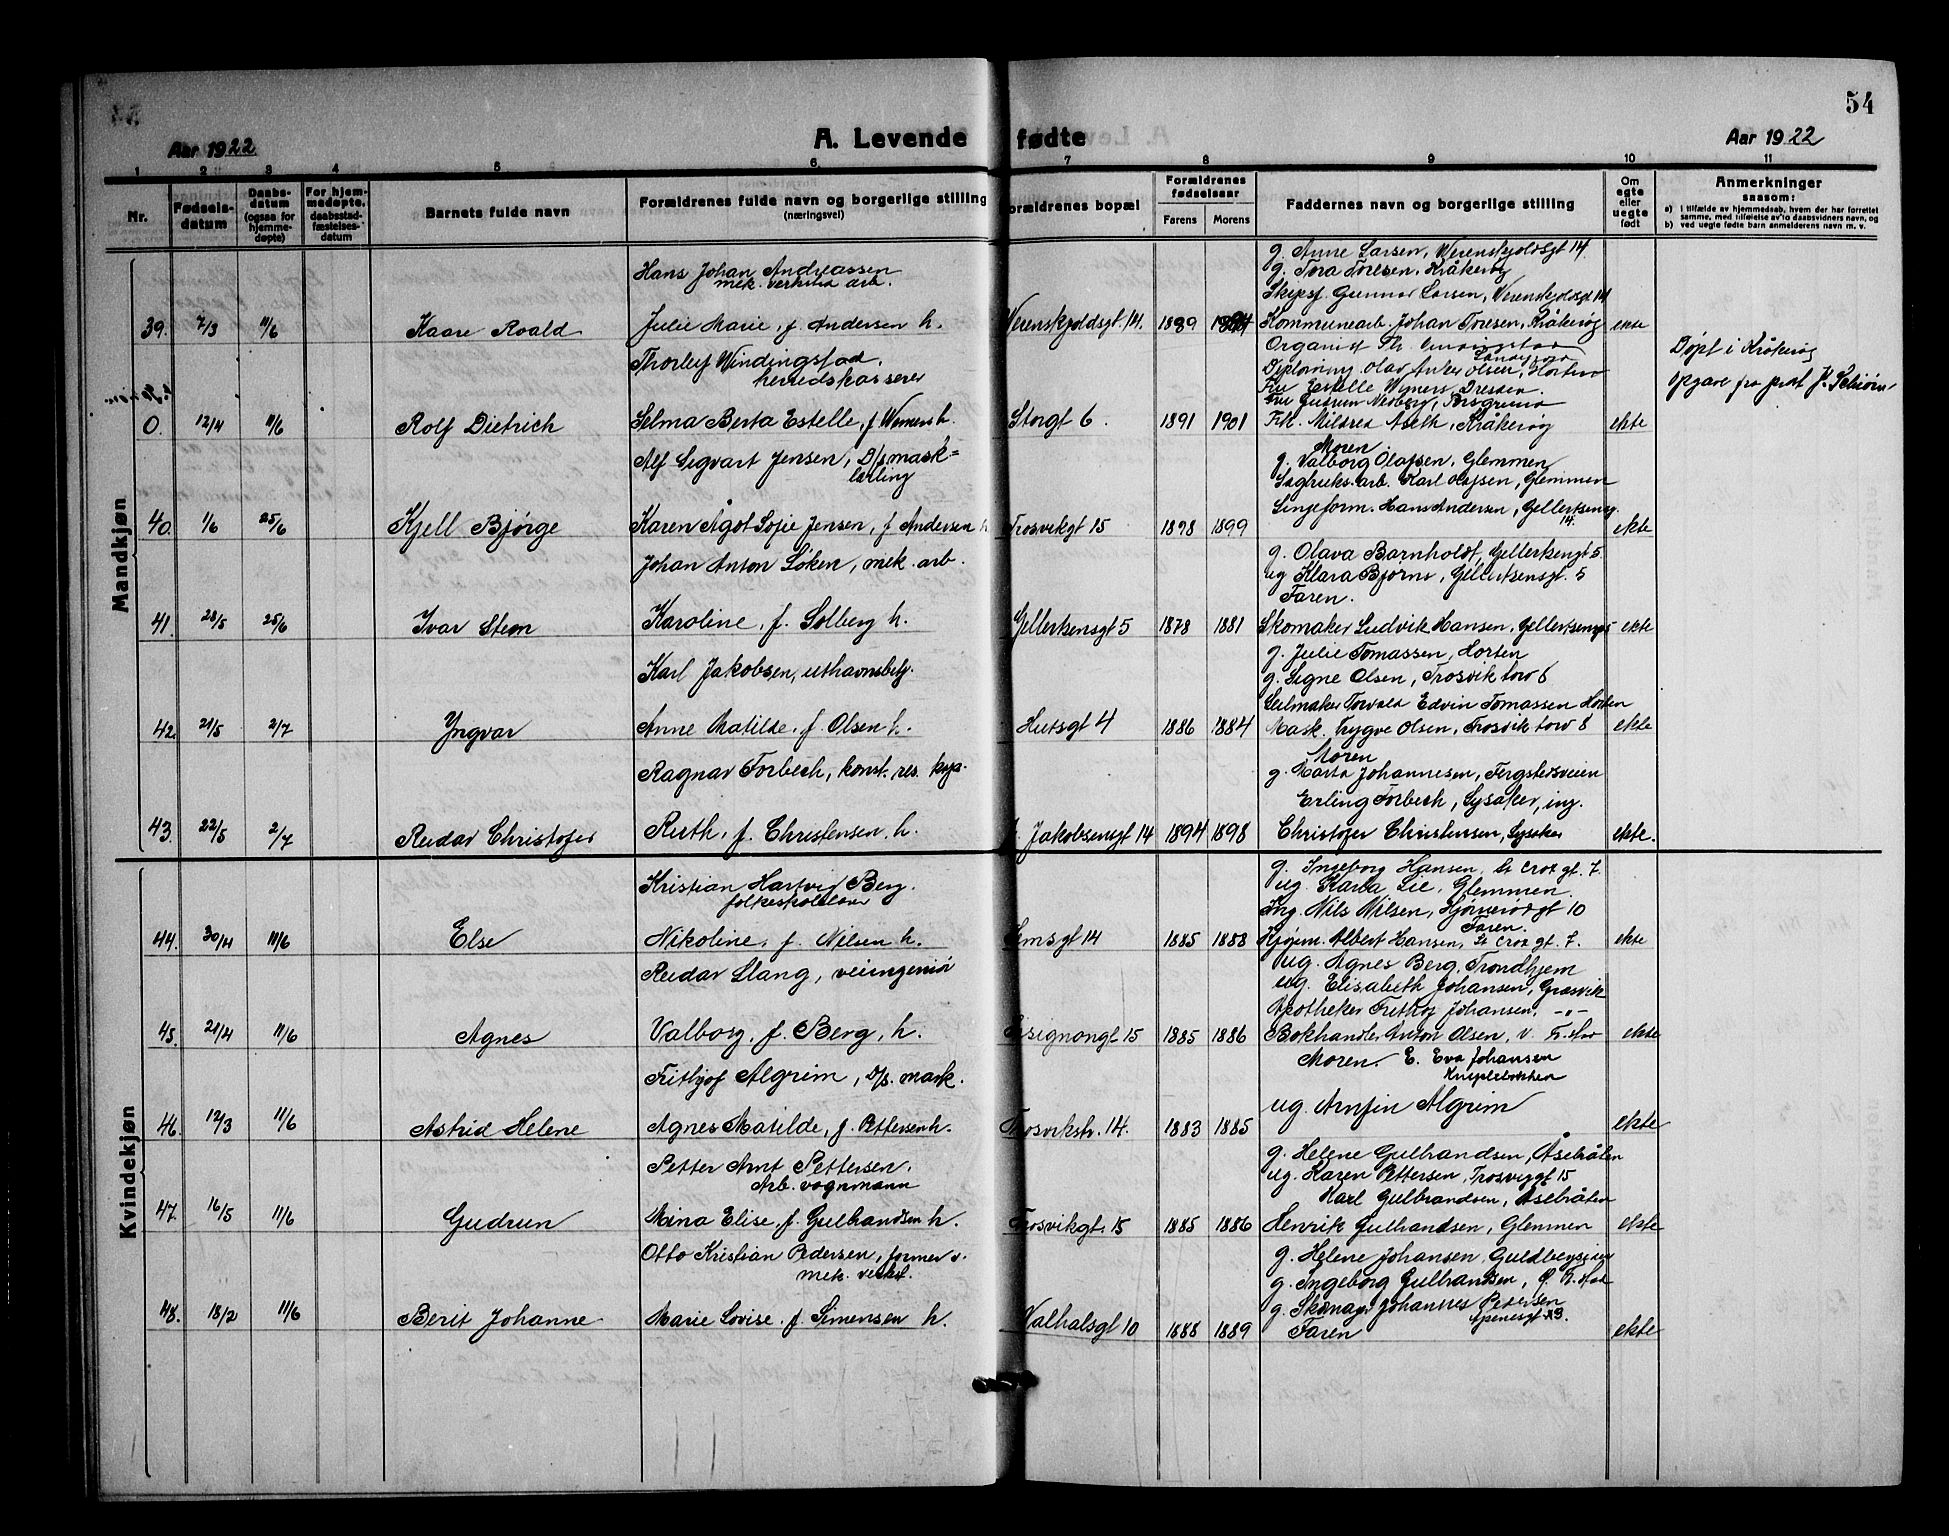 54
Aar 1922
A. Levende fødte
Aar 1922
1 2 3 4 5 6 7 8 9 10 11
Nr.
Fødsels-datum
Daabs-datum (ogsaa for hjemme-døpte)
For hjem-medøpte, daabsstad-fæstelses-datum
Barnets fulde navn
Forældrenes fulde navn og borgerlige stilling (næringsvei)
Forældrenes bopæl
Forældrenes fødselsaar
Farens Morens
Faddernes navn og borgerlige stilling
Om egte eller uegte født
Anmerkninger saasom:
a) i tilfælde av hjemmedaab, hvem der har forrettet samme, med tilføielse av to daabsvidners navn, og
b) ved uegte fødte barn anmelderens navn m. v.
Mandkjøn
Hans Johan Andreassen
mek. verksted arb.
g. Anne Larsen, Werenskjoldsgt 14.
g. Tora Toresen, Kråkerøy
Skipsf. Gunnar Larsen, Werenskjoldsgt 14
39. 7/3 11/6 Kaare Roald Julie Marie, f. Andersen h. Werenskjoldsgt. 14. 1889 Kommunearb. Johan Toresen, Kråkerøy ekte
Thorleif Windingstad,
herredskasserer
Organist Th.
Olav Anker Olsen, Horten
Fru Estelle Wymers, Dresden
Fru Gudrun Nedberg, Porsgrund
Døpt i Kråkerøy
opgave fra prost
0. 12/4 11/6 Rolf Dietrich Selma Berta Estelle, f. Wemers h. Storgt 6. 1891 1901 Frk. Mildred Aseth, Kråkerøy ekte
Alf Sigvart Jensen, D/s mask-
lærling
Moren
g. Valborg Olafsen, Glemmen
Sagbruks.arb. Karl Olafsen, Glemmen
Lingeform. Hans Andersen, Gellertsensg. 14.
40. 1/6 25/6 Kjell Bjørge Karen Ågot Sofie Jensen, f. Andersen h Trosvikgt 15 1898 1899 ekte
Johan Anton Løken, mek. arb.
g. Olava Barnholdt, Gellertsengt 5
ug Klara Bjørns, Gellertsensgt. 5
Faren.
41. 28/5 25/6 Ivar Stern Karoline, f. Solberg h. Gellertsensgt 5 1878 1881 Skomaker Ludvik Hansen, Gellertsensg 5 ekte
Karl Jakobsen, uthavnsbetj.
g. Julie Tomassen, Horten
g. Signe Olsen, Trosvik torv 8
Seilmaker Torvald Edvin Tomassen Horten
42. 21/5 2/7 Yngvar Anne Matilde, f. Olsen h. Hutsgt 4 1886 1884 Mask. Trygve Olsen, Trosvik torv 8 ekte
Ragnar Forbech, konst. res. kap.
Moren
g. Marta Johannesen, Fergestedsveien
Erling Forbech, Lysaker, ing.
43. 22/5 2/7 Reidar Christofer Ruth, f. Christensen, h. Jakobsensgt 14 1894 1898 Christofer Christensen, Lysaker ekte.
Kvindekjøn
Kristian Hartvig Berg.
folkeskolelærer
g. Ingeborg Hansen, St Crox gt. 7
ug. Karla Lie, Glemmen.
Ing. Nils Nilsen, Hjørnerødgt 10
Faren.
44. 30/4 11/6 Else Nikoline, f. Nilsen h. Simsgt 14 1885 1888 Kjøpm. Albert Hansen, St Crox gt. 7. ekte
Reidar Slang, veiingeniør
ug. Agnes Berg, Trondhjem
ug. Elisabeth Johansen, Græsvik
Apotheker Frithjof Johansen, -"-
45. 21/4 11/6 Agnes Valborg, f. Berg, h. Cisignongt 15 1885 1886 Bokhandler Anton Olsen, v. Fr.stad ekte
Fritjof Algrim, D/s. mask.
Moren. E. Eva Johansen
ug. Arnfin Algrim
46. 12/3 11/6 Astrid Helene Agnes Matilde, f. Pettersen h. Trosvikstr. 14. 1883 1885 ekte
Petter Arnt Pettersen,
Arb. vognmann
g. Helene Gulbrandsen, Åsebråten
ug. Karen Pettersen, Trosvikgt 15
Karl Gulbrandsen, Åsebråten
47. 16/5 11/6 Gudrun Mina Elise, f. Gulbrandsen h. Trosvikgt. 15 1885 1886 Henrik Gulbrandsen, Glemmen ekte
Otto Kristian Pedersen, former v.
mek. verkst.
g. Helene Johansen,
g. Ingeborg Gulbrandsen,
g. Johannes Petersen
48. 18/2 11/6 Berit Johanne Marie Lovise, f. Simensen h. Valhalsgt 10 1888 1889 Faren ekte